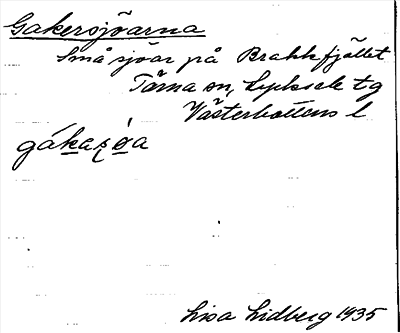 Gakersjöarna
Små sjöar på Brakkfjället
Tärna sn, Lycksele tg
Västerbottens l
gákaʂø̱a
Lisa Lidberg 1935